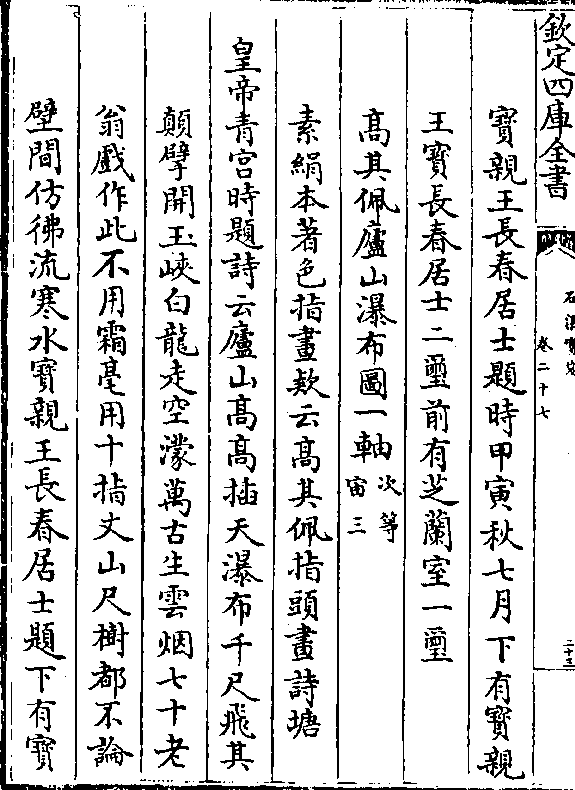 欽定四庫全書
石渠寶笈
卷二十七
二十三
寶親王長春居士題時甲寅秋七月下有寶親
王寶長春居士二璽前有芝蘭室一璽
高其佩廬山瀑布圖一軸 次等 宙三
素絹本著色指畫款云高其佩指頭畫詩塘
皇帝青宮時題詩云廬山高高插天瀑布千尺飛其
顛擘開玉峽白龍走空濛萬古生雲烟七十老
翁戲作此不用霜毫用十指丈山尺樹都不論
壁間仿彿流寒水寶親王長春居士題下有寶